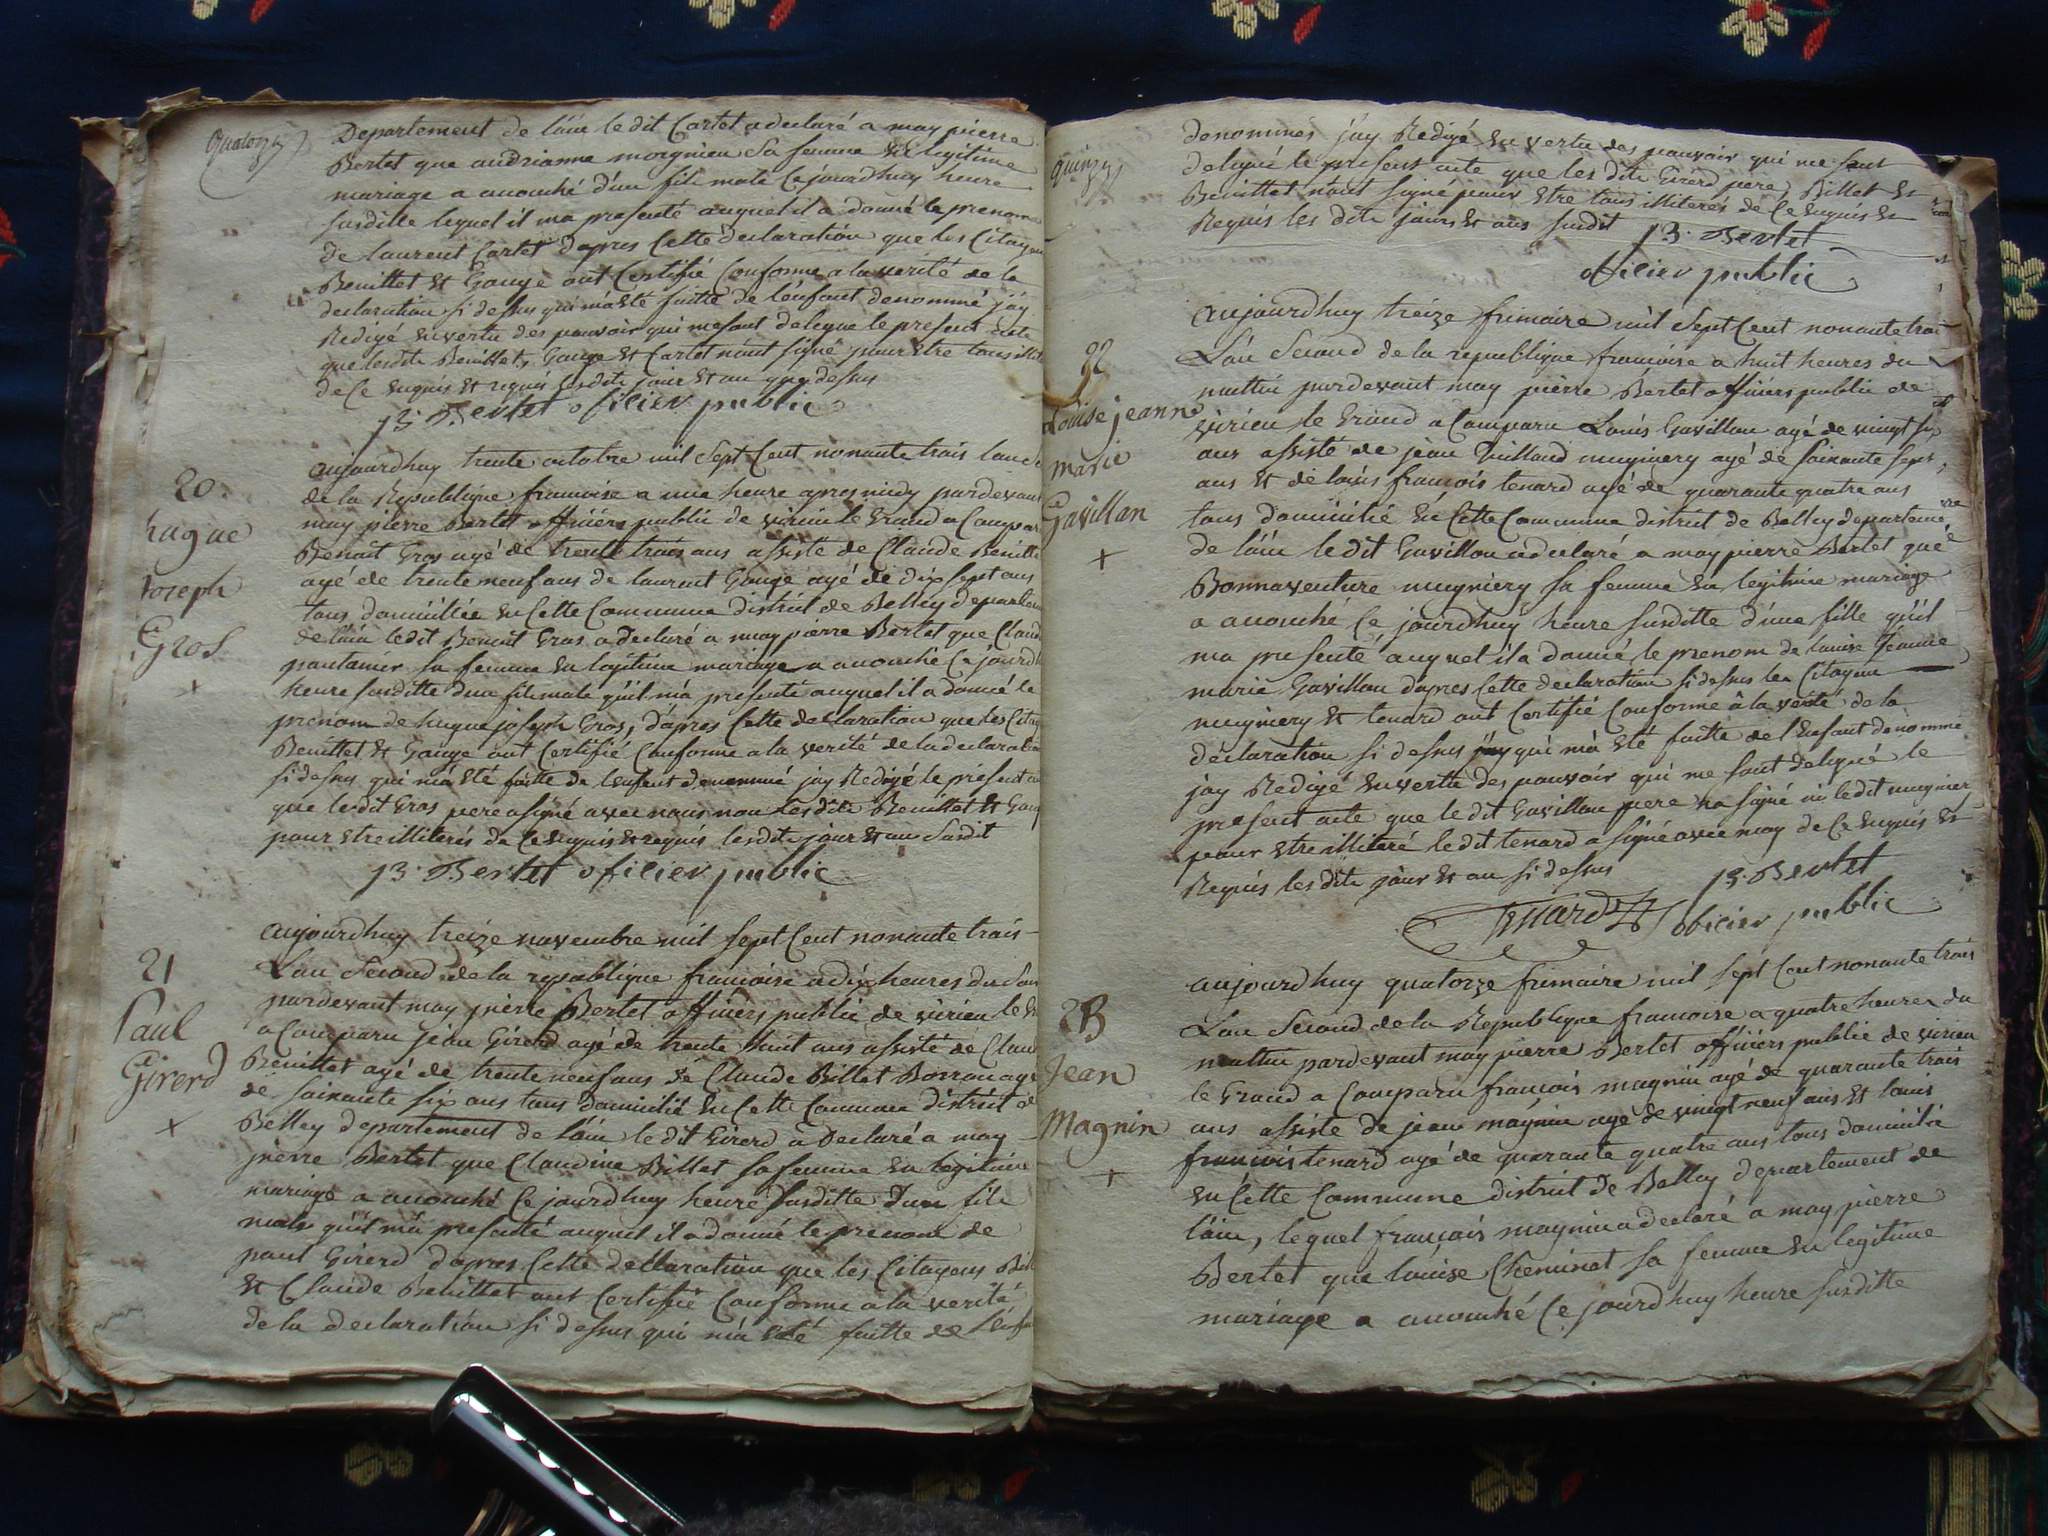 Quatorze
Departement de l'ain le dit Cartet a declaré a moy pierre
Bertet que andrianne morgnieu sa femme en legitime
mariage a accouché d'un fils male Ce jourdhuy heure
susditte lequel il ma presenté auquel il a donné le prenom
de laurent Cartet dapres Cette declaration que les Citoyens
Benittet et Gouge ont Certifié Conforme a la verité de la
declaration si desus qui ma été faitte de l'enfant denommé j'ay
Redigé en vertu des pouvoir qui me sont delegué le present acte
que lesdits Benittet, Gouge et Cartet n'ont signé pour etre tous illit
de Ce enquis et requis lesdits jour et an que desus
P. Bertet oficier public
20
hugue
Joseph
Gros
+
aujourdhuy trente octobre mil sept Cent nonante trois lan
de la Republique francoise a une heure apres midy pardevant
moy pierre Bertet officiers public de virieu le Grand a Comparu
Benoit Gros agé de trente trois ans assiste de Claude Benittet
agé de trente neuf ans de laurent Gouge agé de dix sept ans
tous domicilié en Cette Commune district de Belley departem
de l'ain le dit Benoit Gros a declaré a moy pierre Bertet que Claud
pantanier sa femme en legitime mariage a accouché Ce jourdh
heure susditte d'un fils male qu'il m'a presenté auquel il a donné le
prenom de hugue joseph Gros, d'apres Cette declaration que les Citoy
Benittet et Gouge ont Certifié Conforme a la verité de la declaration
si desus qui m'a été faitte de l'enfant denommé jay Redigé le present
que ledit Gros pere a signé avec nous non lesdits Benittet et Goug
pour etre illiterés de Ce enquis et requis lesdits jour et an susdit
P. Bertet oficier public
21
Paul
Girerd
+
aujourdhuy treize novembre mil sept Cent nonante trois
L'an Second de la republique francoise a dix heures du soir
pardevant moy pierre Bertet officiers public de virieu le Gr
a Comparu jean Girerd agé de trente huit ans assisté de Claud
Benittet agé de trente neuf ans de Claude Billet Borron agé
de soixante six ans tous domicilié en Cette Commune district de
Belley departement de l'ain le dit Girerd a declaré a moy
pierre Bertet que Claudine Billet sa femme en legitime
mariage a accouché Ce jourdhuy heure susditte d'un fils
male qu'il m'a presenté auquel il a donné le prenom de
paul Girerd d'apres Cette declaration que les Citoyens Bil
et Claude Benittet ont Certifié Conforme a la verité
de la declaration si desus qui m'a été faitte de l'enfan
quinze
denommes j'ay Redigé en vertu des pouvoir qui me sont
delegué le present acte que les dits Girerd pere, Billet et
Benittet n'ont signé pour etre tous illiterés de Ce enquis et
Requis les dits jours et ans susdit P. Bertet
oficier public
22
Louise jeanne
marie
Gavillon
+
aujourdhuy treize frimaire mil sept Cent nonante troi
L'an Second de la republique francoise a huit heures du
mattin pardevant moy pierre Bertet officiers public de
virieu le Grand a Comparu Louis Gavillon agé de vingt six
ans assisté de jean Guilland mugniery agé de soixante sept
ans et de louis françois tenard agé de quarante quatre ans
tous domicilié en Cette Commune district de Belley departeme
de l'ain le dit Gavillon a declaré a moy pierre Bertet que
Bonnaventure mugniery sa femme en legitime mariage
a accouché Ce jourdhuy heure susditte d'une fille qu'il
ma presenté auquel il a donné le prenom de louise Jeanne
marie Gavillon d'apres Cette declaration si desus les Citoyens
mugniery et tenard ont Certifié Conforme à la verité de la
declaration si desus qui m'a été faitte de l'enfant denommé
j'ay Redigé en vertu des pouvoir qui me sont delegué le
present acte que le dit Gavillon pere n'a signé ni le dit mugniery
pour etre illiteré le dit tenard a signé avec moy de Ce enquis et
Requis les dits jour et an si desus P. Bertet
Tenard oficier public
23
Jean
Magnin
+
aujourdhuy quatorze frimaire mil sept Cent nonante trois
L'an Second de la Republique francoise a quatre heures du
mattin pardevant moy pierre Bertet officiers public de virieu
le Grand a Comparu francois magnin agé de quarante trois
ans assiste de jean magnin agé de vingt neuf ans et louis
francois tenard agé de quarante quatre ans tous domicilié
en Cette Commune district de Belley departement de
l'ain, lequel françois magnin a declaré a moy pierre
Bertet que louise Cheminet sa femme en legitime
mariage a accouché Ce jourdhuy heure susditte